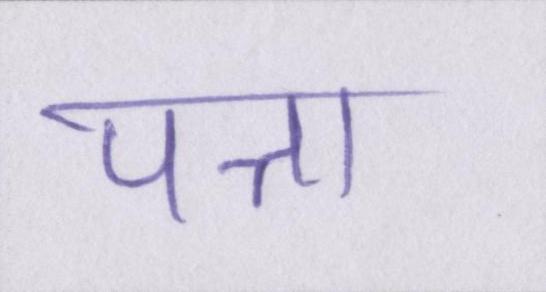 पत्ता